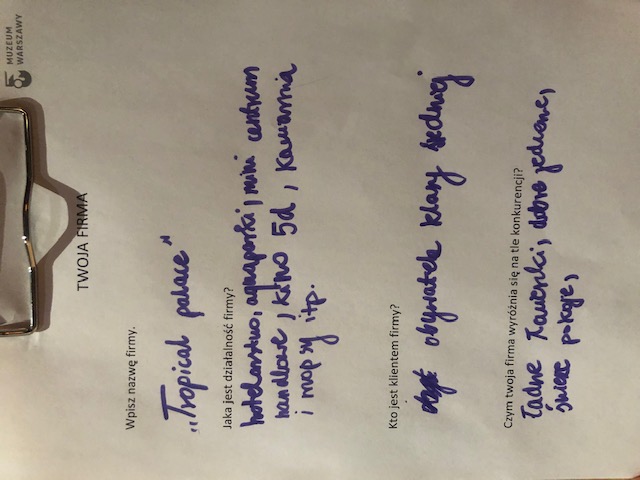 MUZEUM
WARSZAWY
TWOJA FIRMA
Wpisz nazwę firmy.
„Tropical palace"
Jaka jest działalność firmy?
hotelarstwo, aquaparki, mini centrum
handlowe, kino 5d, kawiarnia
i mopsy itp.
Kto jest klientem firmy?
obywatele klasy średniej
Czym twoja firma wyróżnia się na tle konkurencji?
Ładne Łazienki, dobre jedzenie,
świeże pokoje,